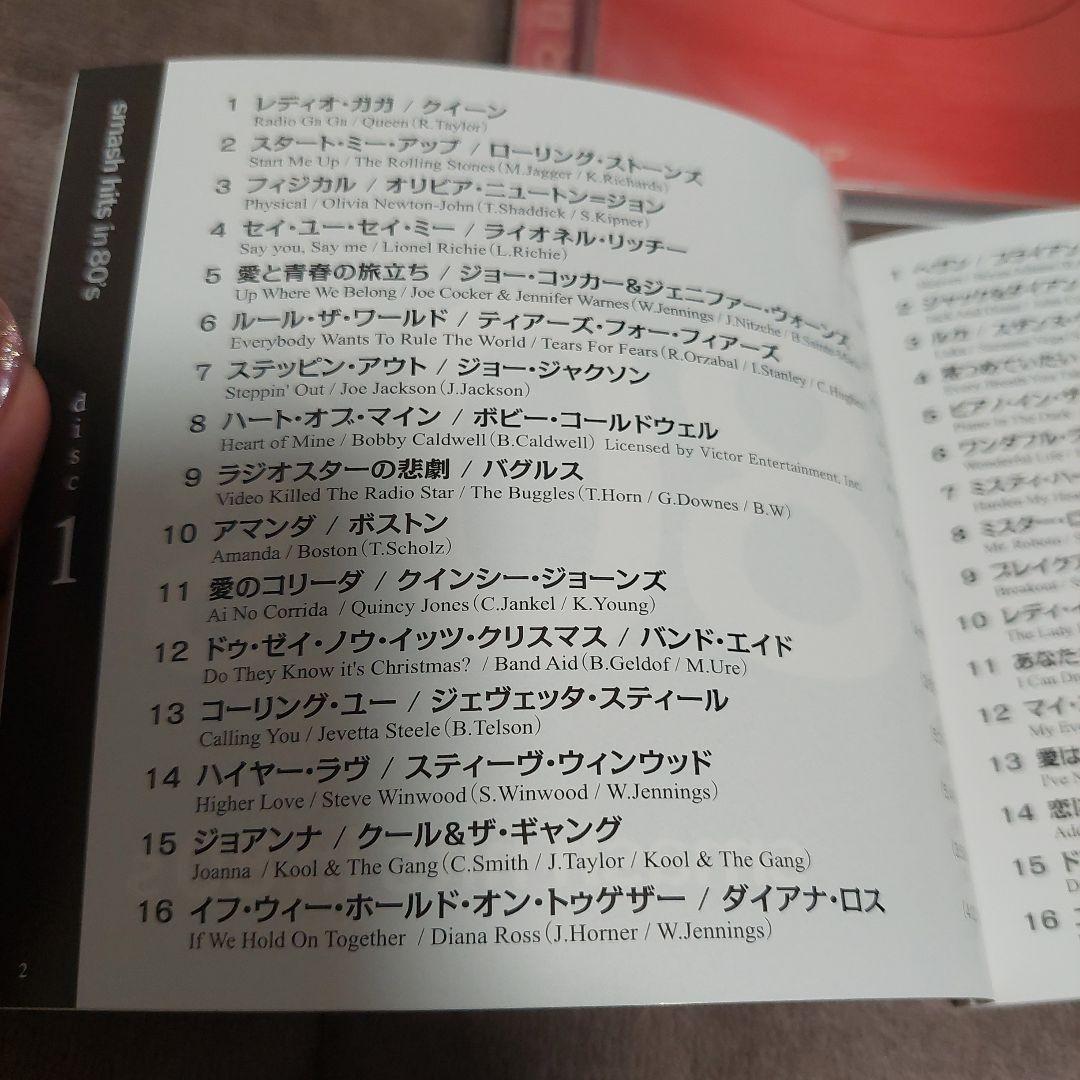 smash hits in 80's
disc 1
1 レディオ・ガガ / クイーン
Radio Ga Ga / Queen (R.Taylor)
2 スタート・ミー・アップ / ローリング・ストーンズ
Start Me Up / The Rolling Stones (M.Jagger / K.Richards)
3 フィジカル / オリビア・ニュートン=ジョン
Physical / Olivia Newton-John (T.Shaddick / S.Kipner)
4 セイ・ユー・セイ・ミー / ライオネル・リッチー
Say you, Say me / Lionel Richie (L.Richie)
5 愛と青春の旅立ち / ジョー・コッカー&ジェニファー・ウォーンズ
Up Where We Belong / Joe Cocker & Jennifer Warnes (W.Jennings / J.Nitzche /
6 ルール・ザ・ワールド / ティアーズ・フォー・フィアーズ
Everybody Wants To Rule The World / Tears For Fears (R.Orzabal / I.Stanley / C.Hughes
7 ステッピン・アウト / ジョー・ジャクソン
Steppin' Out / Joe Jackson (J.Jackson)
8 ハート・オブ・マイン / ボビー・コールドウェル
Heart of Mine / Bobby Caldwell (B.Caldwell) Licensed by Victor Entertainment, Inc.
9 ラジオスターの悲劇 / バグルス
Video Killed The Radio Star / The Buggles (T.Horn / G.Downes / B.W)
10 アマンダ / ボストン
Amanda / Boston (T.Scholz)
11 愛のコリーダ / クインシー・ジョーンズ
Ai No Corrida / Quincy Jones (C.Jankel / K.Young)
12 ドゥ・ゼイ・ノウ・イッツ・クリスマス / バンド・エイド
Do They Know it's Christmas? / Band Aid (B.Geldof / M.Ure)
13 コーリング・ユー / ジェヴェッタ・スティール
Calling You / Jevetta Steele (B.Telson)
14 ハイヤー・ラヴ / スティーヴ・ウィンウッド
Higher Love / Steve Winwood (S.Winwood / W.Jennings)
15 ジョアンナ / クール&ザ・ギャング
Joanna / Kool & The Gang (C.Smith / J.Taylor / Kool & The Gang)
16 イフ・ウィー・ホールド・オン・トゥゲザー / ダイアナ・ロス
If We Hold On Together / Diana Ross (J.Horner / W.Jennings)
2
1 ヘヴン / ブライアン
2 ジャック&ダイアン
3 ルカ / スザンヌ・
4 見つめていたい
5 ピアノ・イン・ザ
Piano In The Dark
6 ワンダフル・
Wonderful Life
7 ミスティ・ハー
Harden My Hea
8 ミスター・ロ
Mr. Roboto
9 ブレイクア
Breakout
10 レディ・イ
The Lady
11 あなた
I Can Dr
12 マイ・
My Eve
13 愛は
I've N
14 恋に
Add
15 ド
D
16